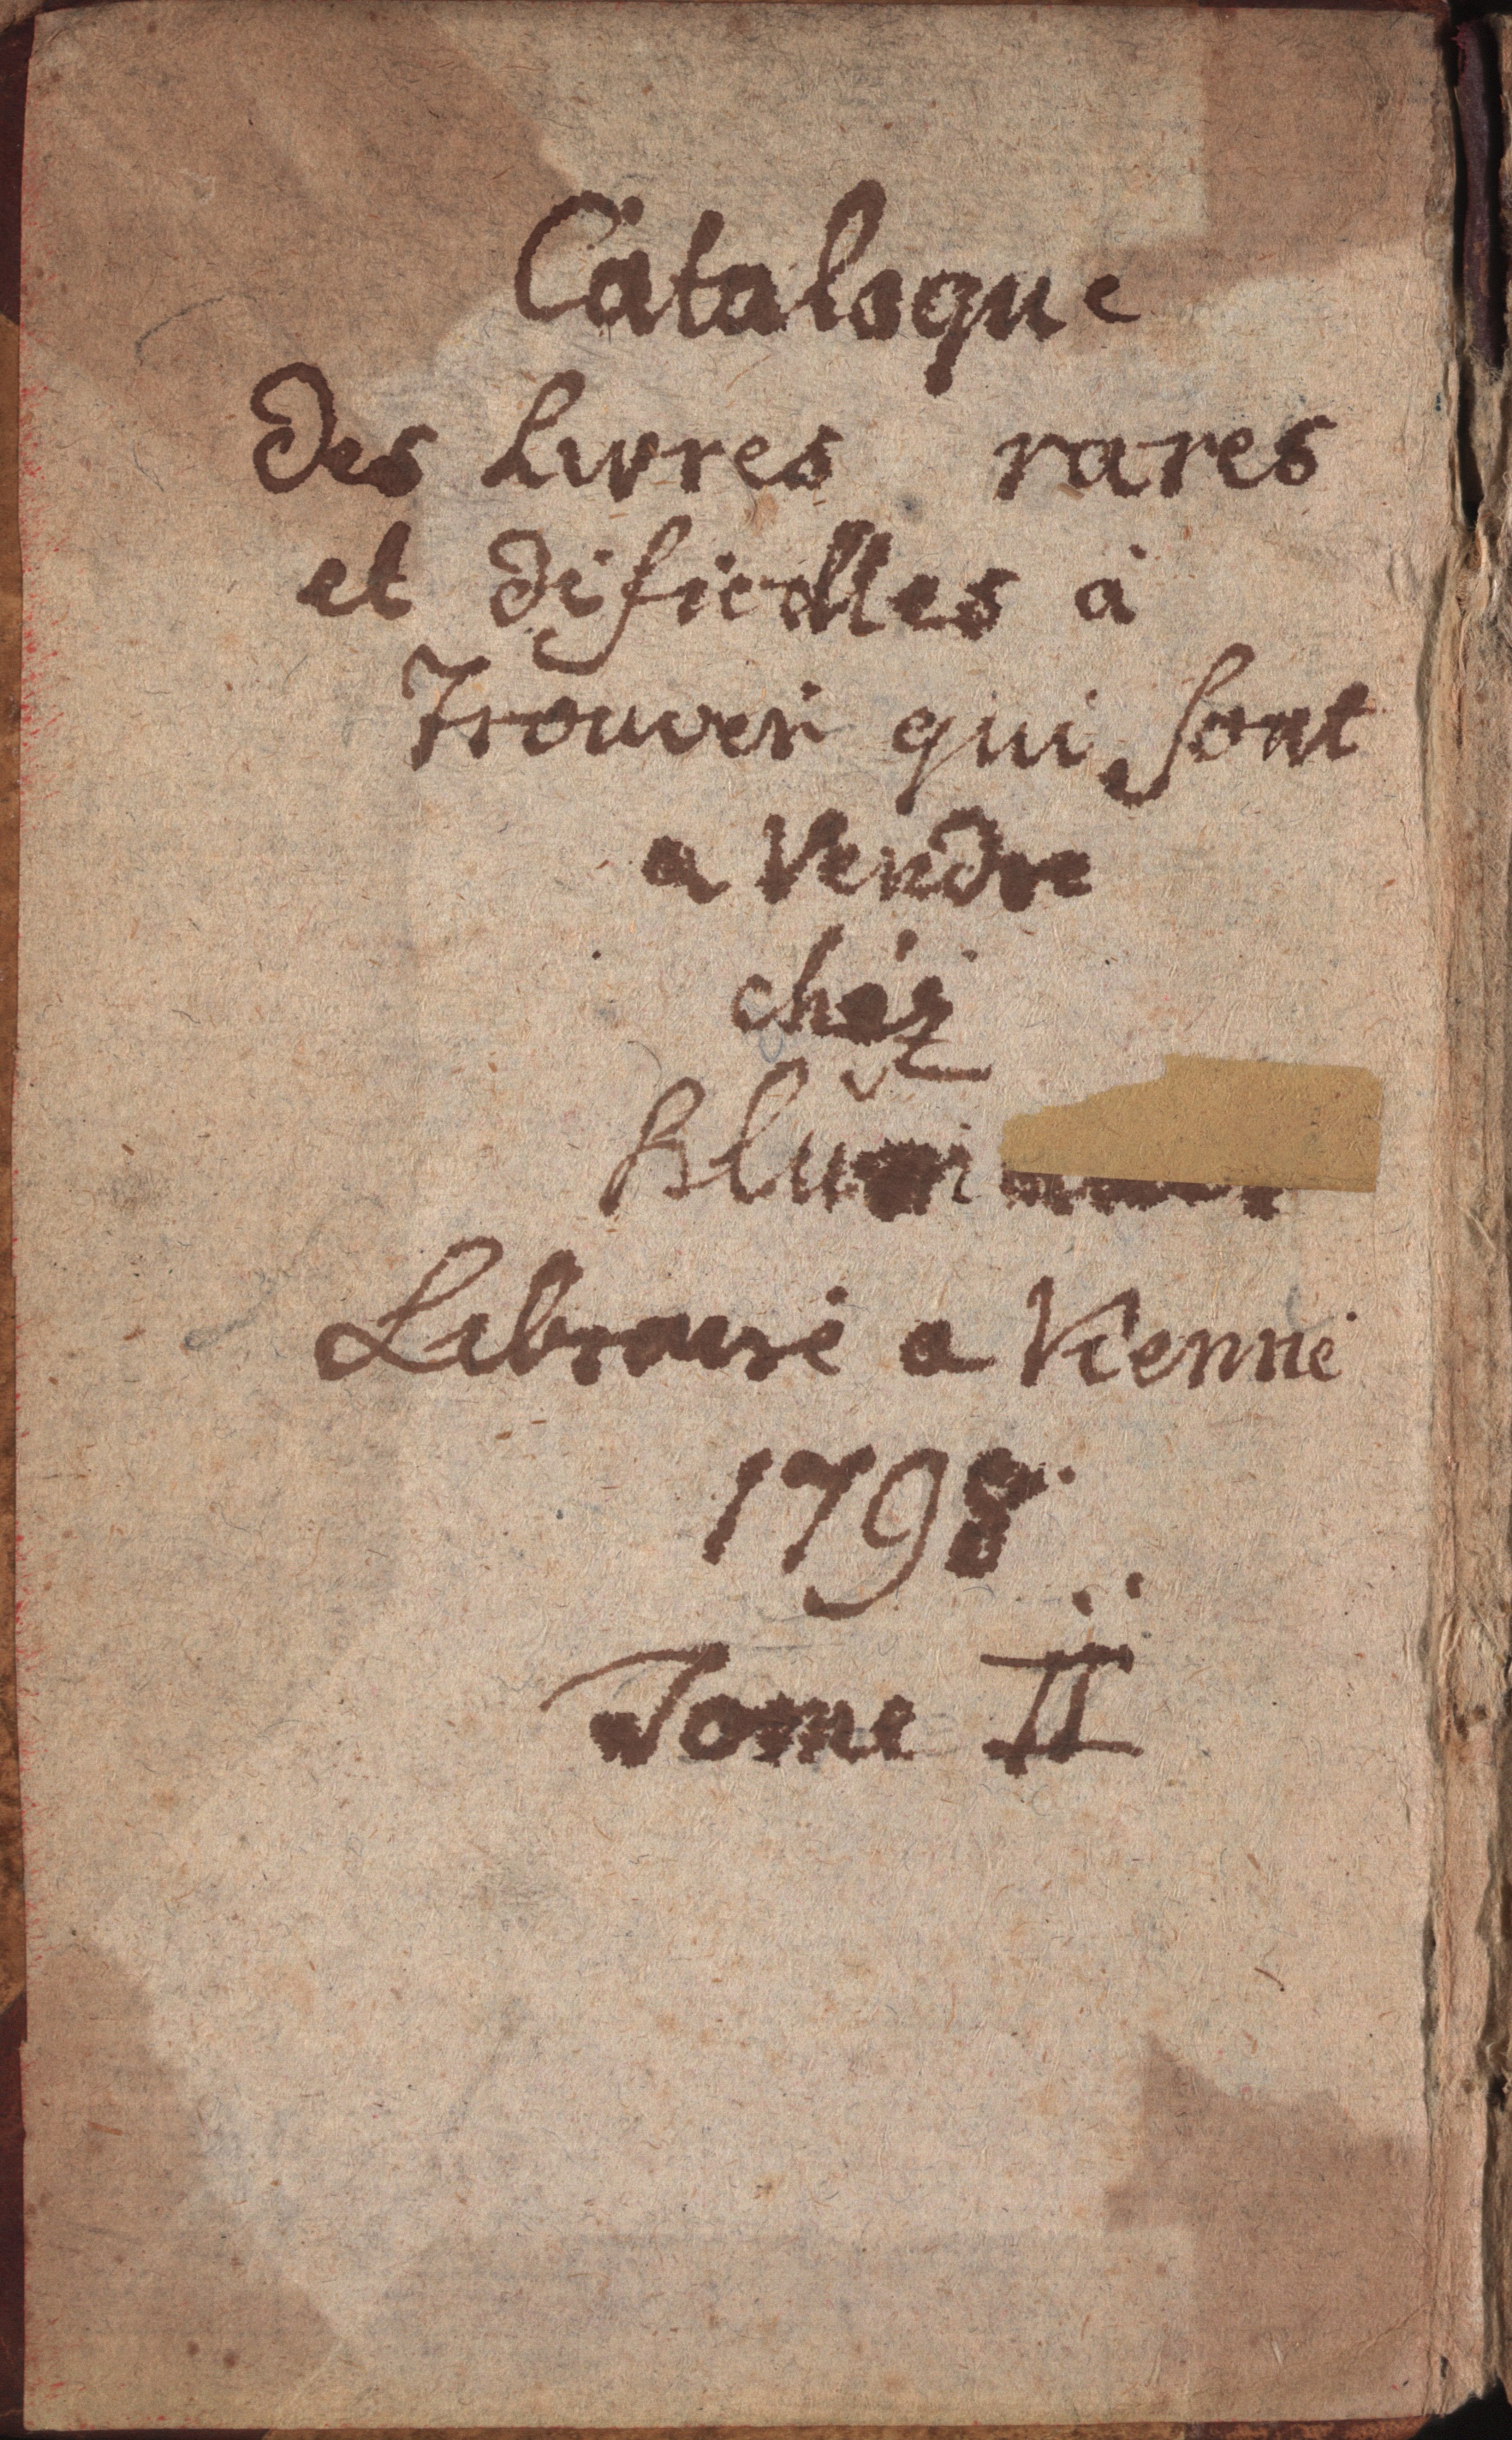 Catalogue
des Livres rares
et dificilles à
trouver qui sont
a Vendre
chéz
Librairé a Vienne
1798
Tome II